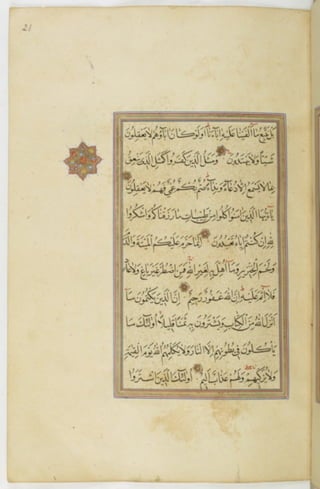 21
بل نتبع ما الفينا عليه اباءنا اولو كان اباؤهم لا يعقلون
شيئا ولا يهتدون ومثل الذين كفروا كمثل الذى ينعق
بما لا يسمع الا دعاء ونداء صم بكم عمى فهم لا يعقلون
يا ايها الذين امنوا كلوا من طيبات ما رزقناكم واشكروا
لله ان كنتم اياه تعبدون انما حرم عليكم الميتة والدم
ولحم الخنزير وما اهل به لغير الله فمن اضطر غير باغ ولا عاد
فلا اثم عليه ان الله غفور رحيم ان الذين يكتمون ما
انزل الله من الكتاب ويشترون به ثمنا قليلا اولئك ما
ياكلون فى بطونهم الا النار ولا يكلمهم الله يوم القيمة
ولا يزكيهم ولهم عذاب اليم اولئك الذين اشتروا